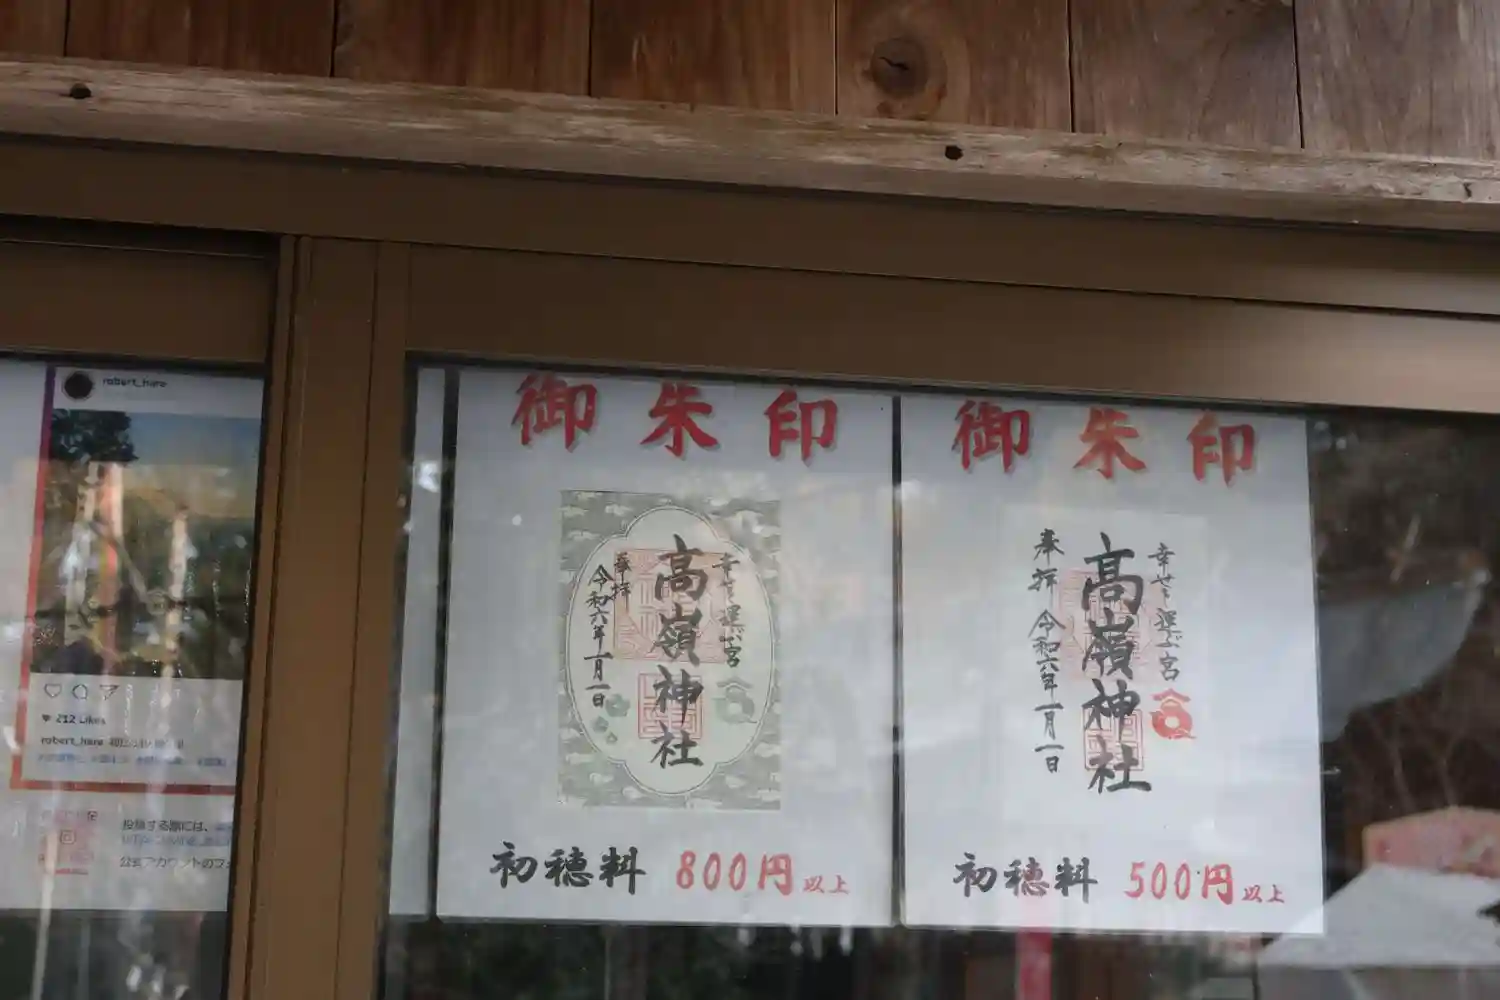 robert_hara
212 Likes
robert_hara
投稿する際には、
公式アカウントのフォ
御朱印
幸せを運ぶ宮
高嶺神社
奉拝
令和六年一月一日
初穂料 800円以上
御朱印
幸せを運ぶ宮
高嶺神社
奉拝 令和六年一月一日
初穂料 500円以上